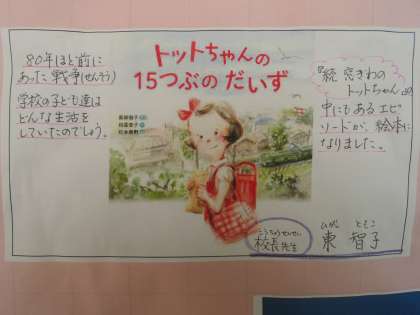 80年ほど前に
あった戦争(せんそう)
学校の子ども達は
どんな生活を
していたのでしょう。
トットちゃんの
15つぶの だいず
黒柳徹子
柏葉幸子
松本春野
『続 窓ぎわの
トットちゃん』の
中にもあるエピ
ソードが、絵本に
なりました。
こうちょうせんせい
校長先生
ひがし ともこ
東 智子